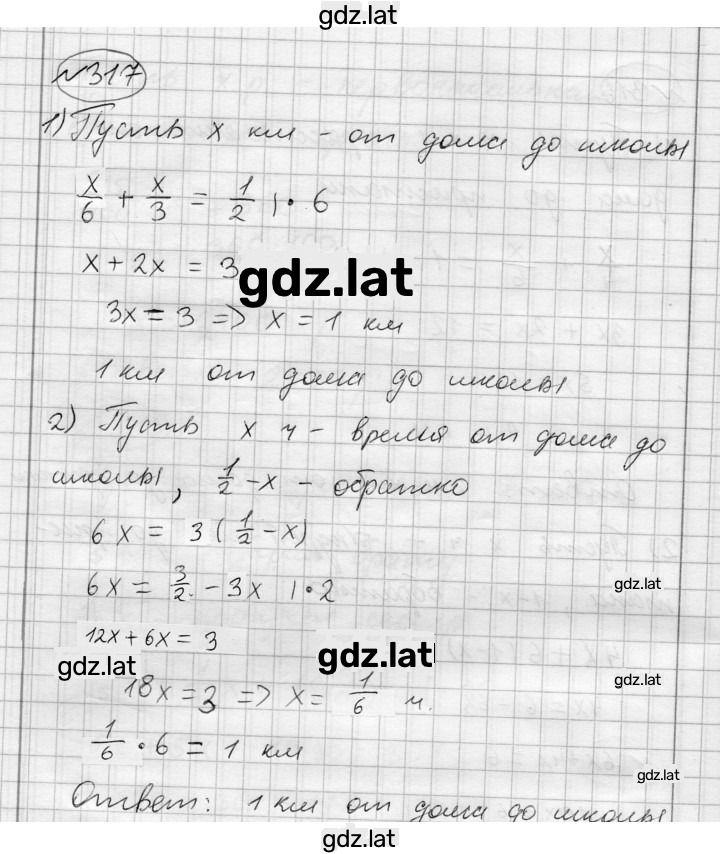 gdz.lat
№317
1) Пусть x км - от дома до школы
x/6 + x/3 = 1/2 | • 6
x + 2x = 3
gdz.lat
3x = 3 => x = 1 км
1 км от дома до школы
2) Пусть x ч - время от дома до
школы, 1/2 - x - обратно
6x = 3(1/2 - x)
6x = 3/2 - 3x | • 2
gdz.lat
12x + 6x = 3
gdz.lat
gdz.lat
18x = 3 => x = 1/6 ч.
gdz.lat
1/6 • 6 = 1 км
gdz.lat
Ответ: 1 км от дома до школы
gdz.lat